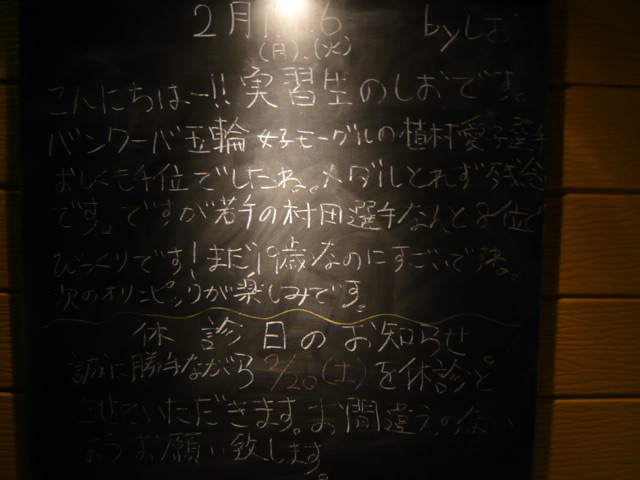 2月1 6 byしお
(月)、(火)
こんにちはー!!実習生のしおです。
バンクーバ五輪 女子モーグルの植村愛子選手
おしくも4位でしたね。メダルとれず残念
です。ですが若手の村田選手なんと8位で
びっくりです!まだ19歳なのにすごいですね。
次のオリンピックが楽しみです。
休診日のお知らせ
誠に勝手ながら2/20(土)を休診と
させていただきます。お間違えのない
ようお願い致します。